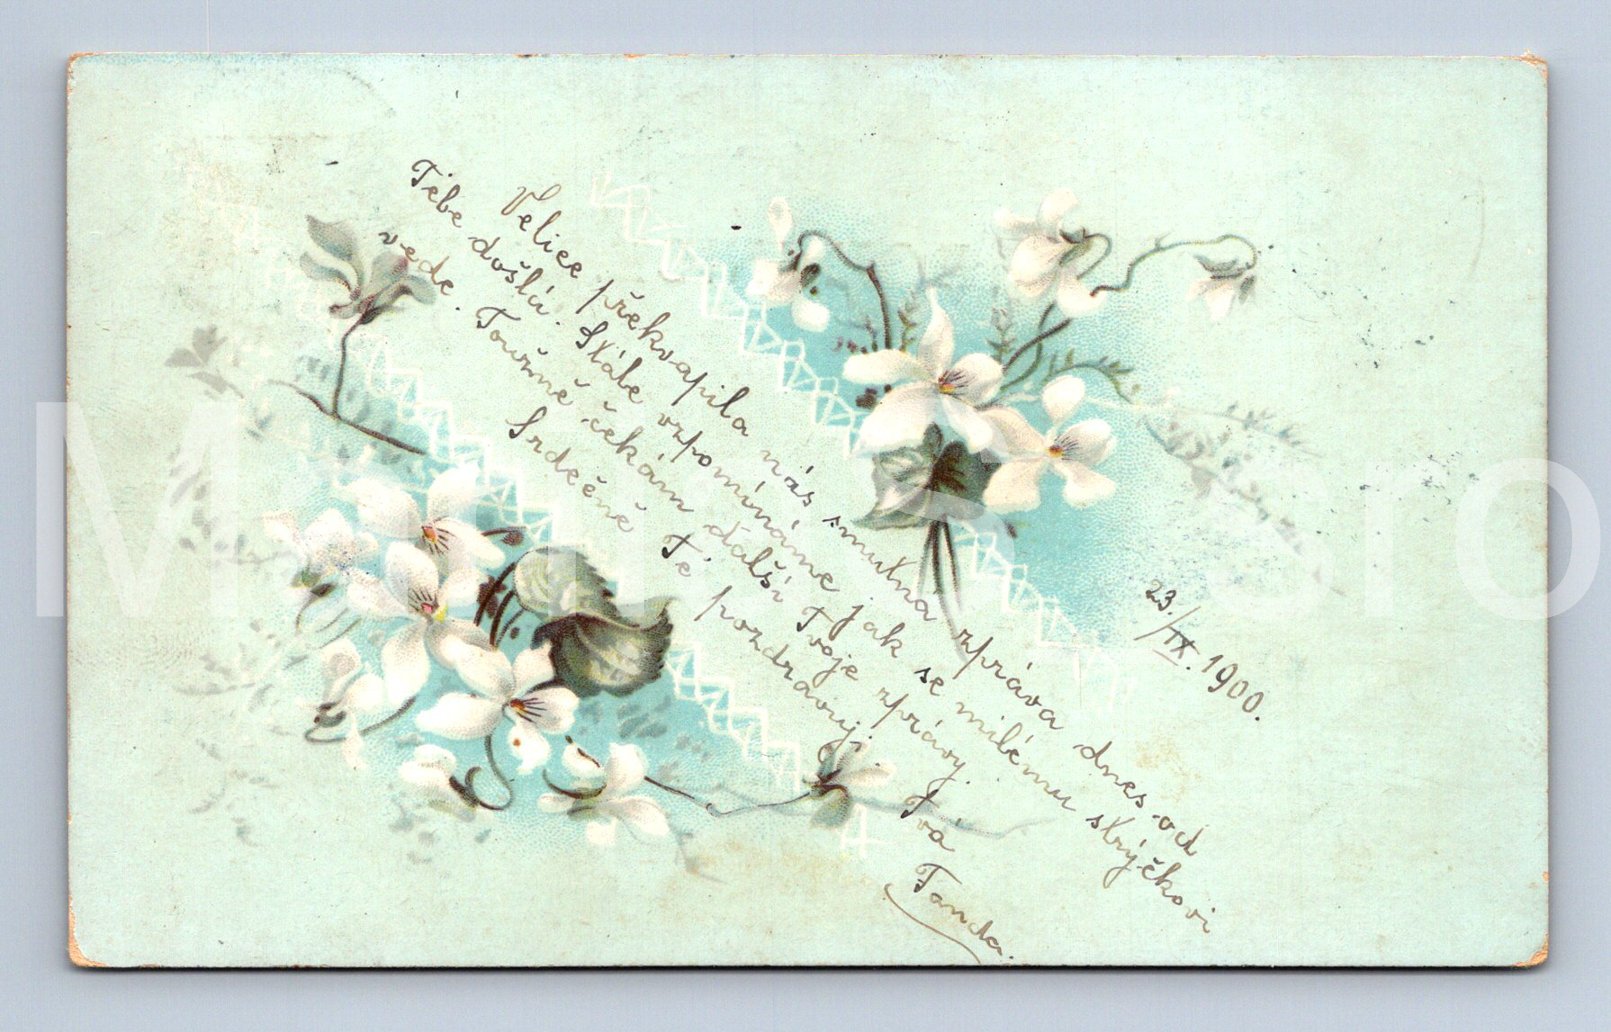 23./IX. 1900.
Velice překvapila nás smutná zpráva dnes od
Tebe došlá. Stále vzpomínáme jak se milému strýčkovi
vede. Touřně čekám další Tvoje zprávy.
Srdečně Tě pozdravuj.
Tvá
Fanda.